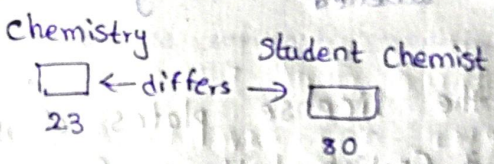 chemistry
Student chemist
← differs →
23
80